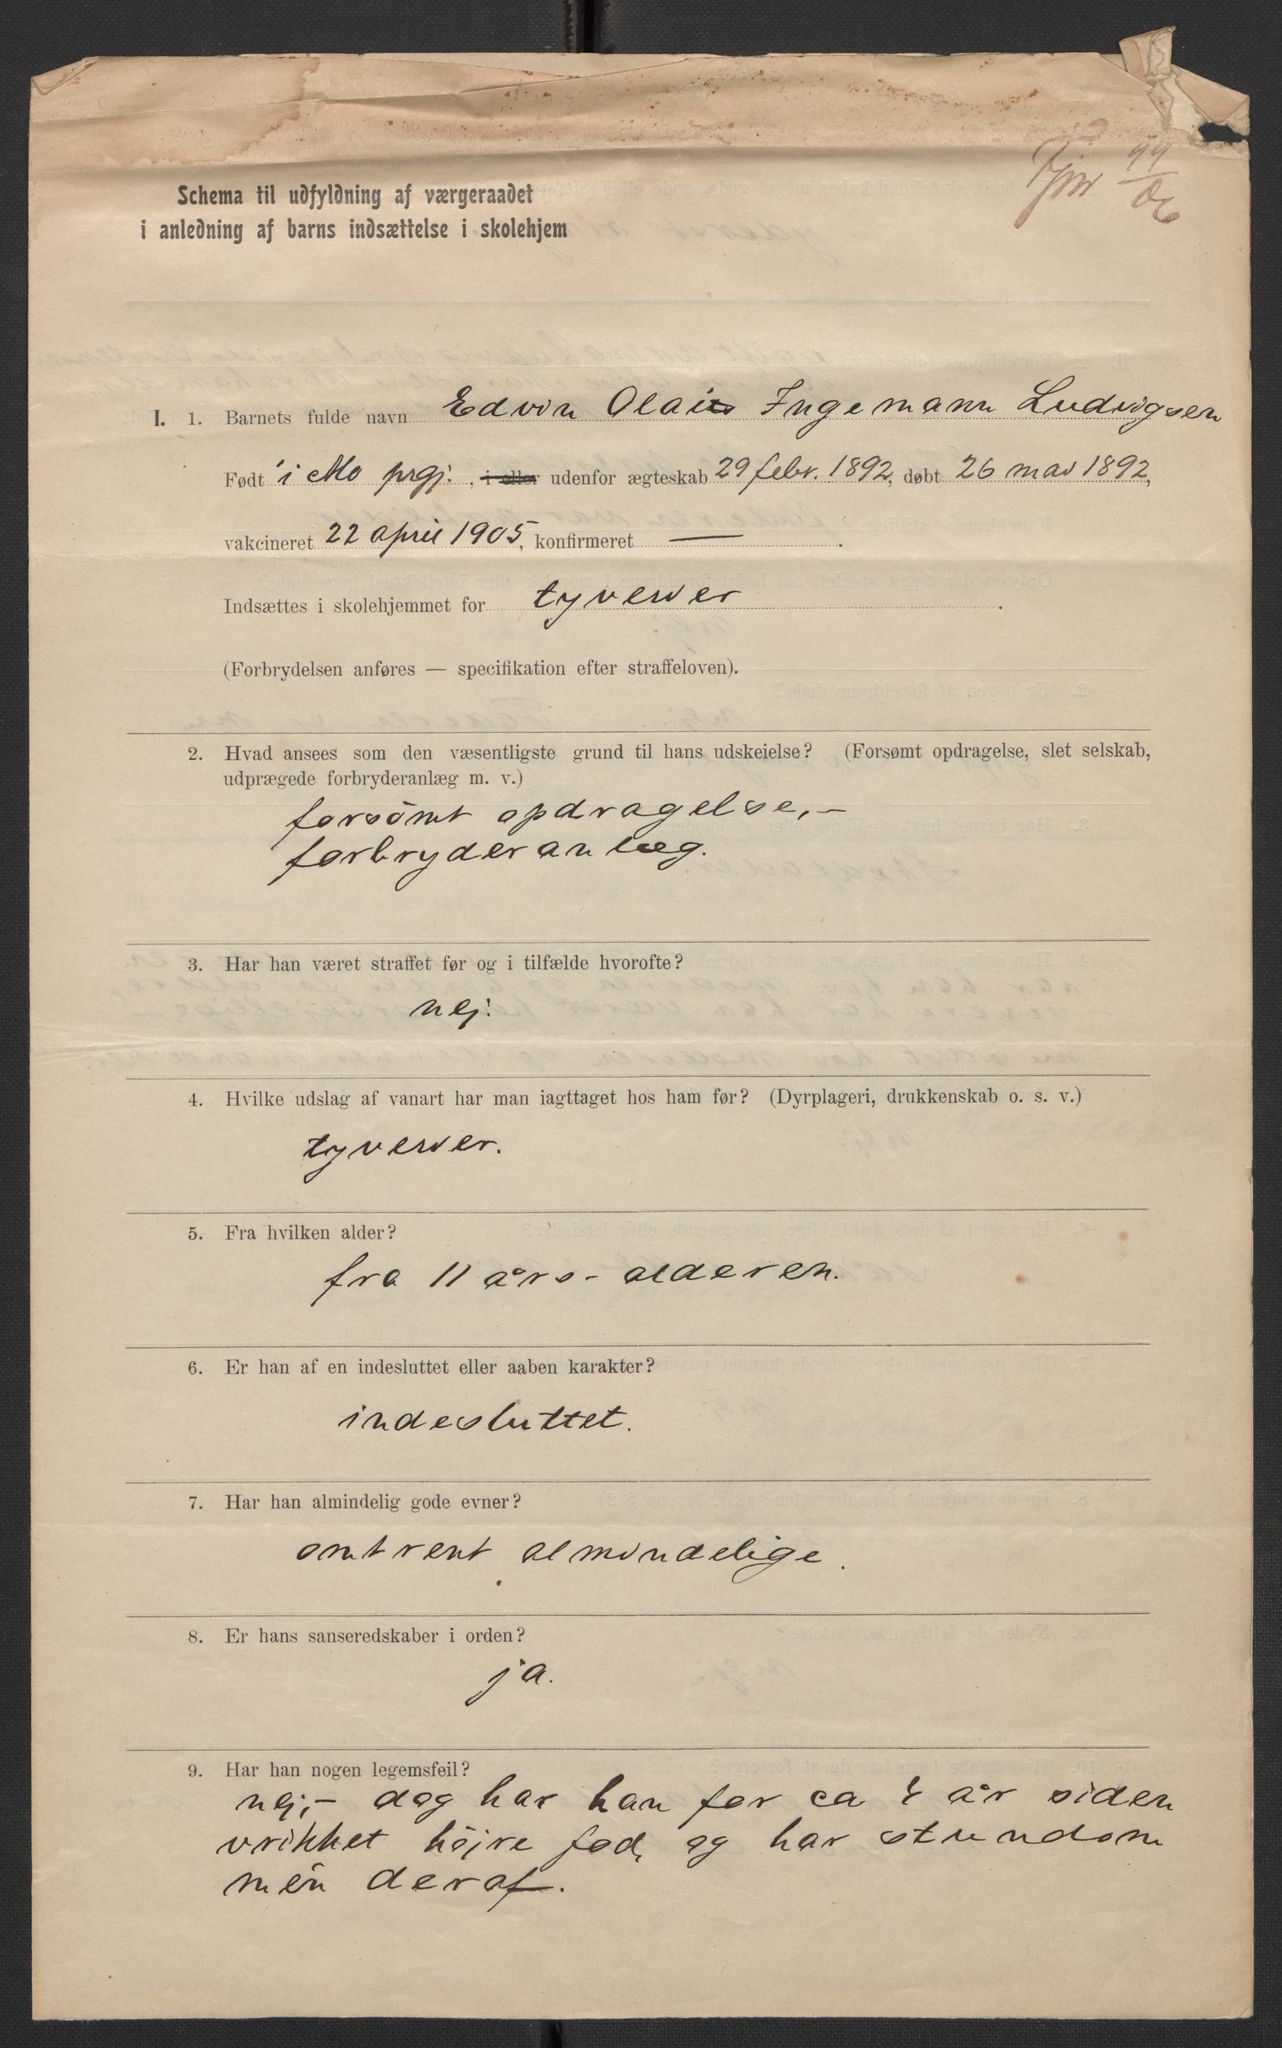 99
06
Schema til udfyldning af værgeraadet
i anledning af barns indsættelse i skolehjem
I. 1. Barnets fulde navn Edvin Olai Ingemann Ludvigsen
Født i Mo prgj., i eller udenfor ægteskab 29 febr. 1892, døbt 26 mai 1892,
vakcineret 22 april 1905, konfirmeret —
Indsættes i skolehjemmet for tyverier.
(Forbrydelsen anføres — specifikation efter straffeloven).
2. Hvad ansees som den væsentligste grund til hans udskeielse? (Forsømt opdragelse, slet selskab,
udprægede forbryderanlæg m. v.)
forsømt opdragelse, –
forbryderanlæg.
3. Har han været straffet før og i tilfælde hvorofte?
nej.
4. Hvilke udslag af vanart har man iagttaget hos ham før? (Dyrplageri, drukkenskab o. s. v.)
tyverier.
5. Fra hvilken alder?
fra 11 års-alderen.
6. Er han af en indesluttet eller aaben karakter?
indesluttet.
7. Har han almindelig gode evner?
omtrent almindelige.
8. Er hans sanseredskaber i orden?
ja.
9. Har han nogen legemsfeil?
nej, – dog har han for ca år siden
vrikket højre fod, og har stundom
mén deraf.